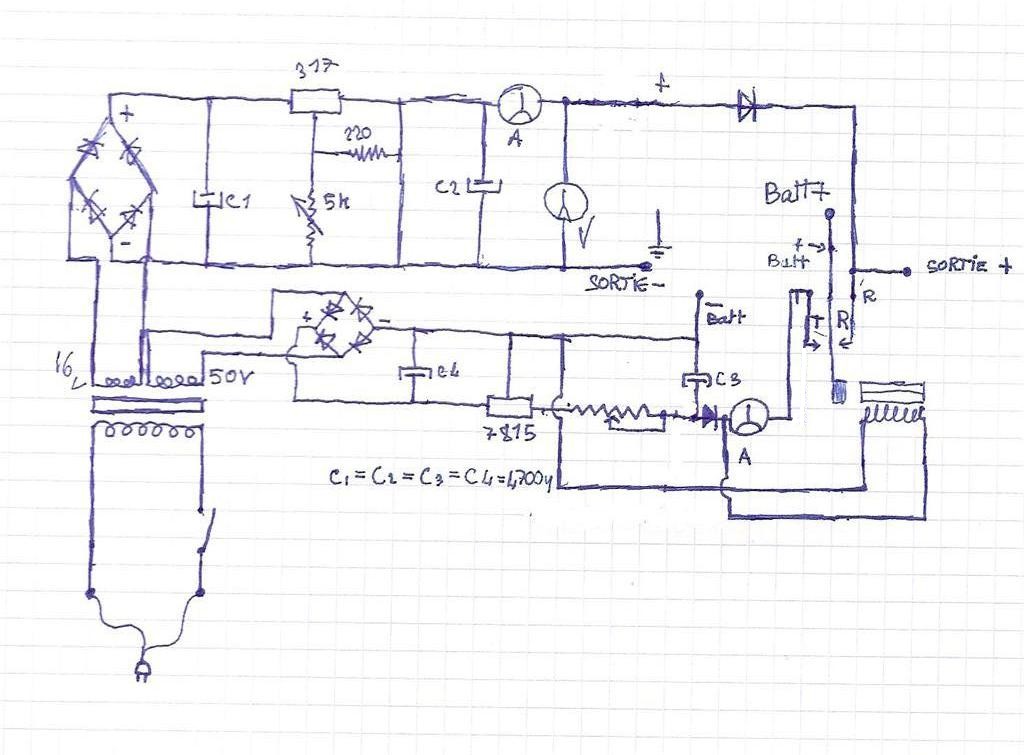 317
+
A
+
220
5k
C1
C2
V
-
Batt+
+
Batt
SORTIE +
R
SORTIE -
- Batt
T
R
+
-
16
50V
C4
C3
7815
A
C1 = C2 = C3 = C4 = 4700µ